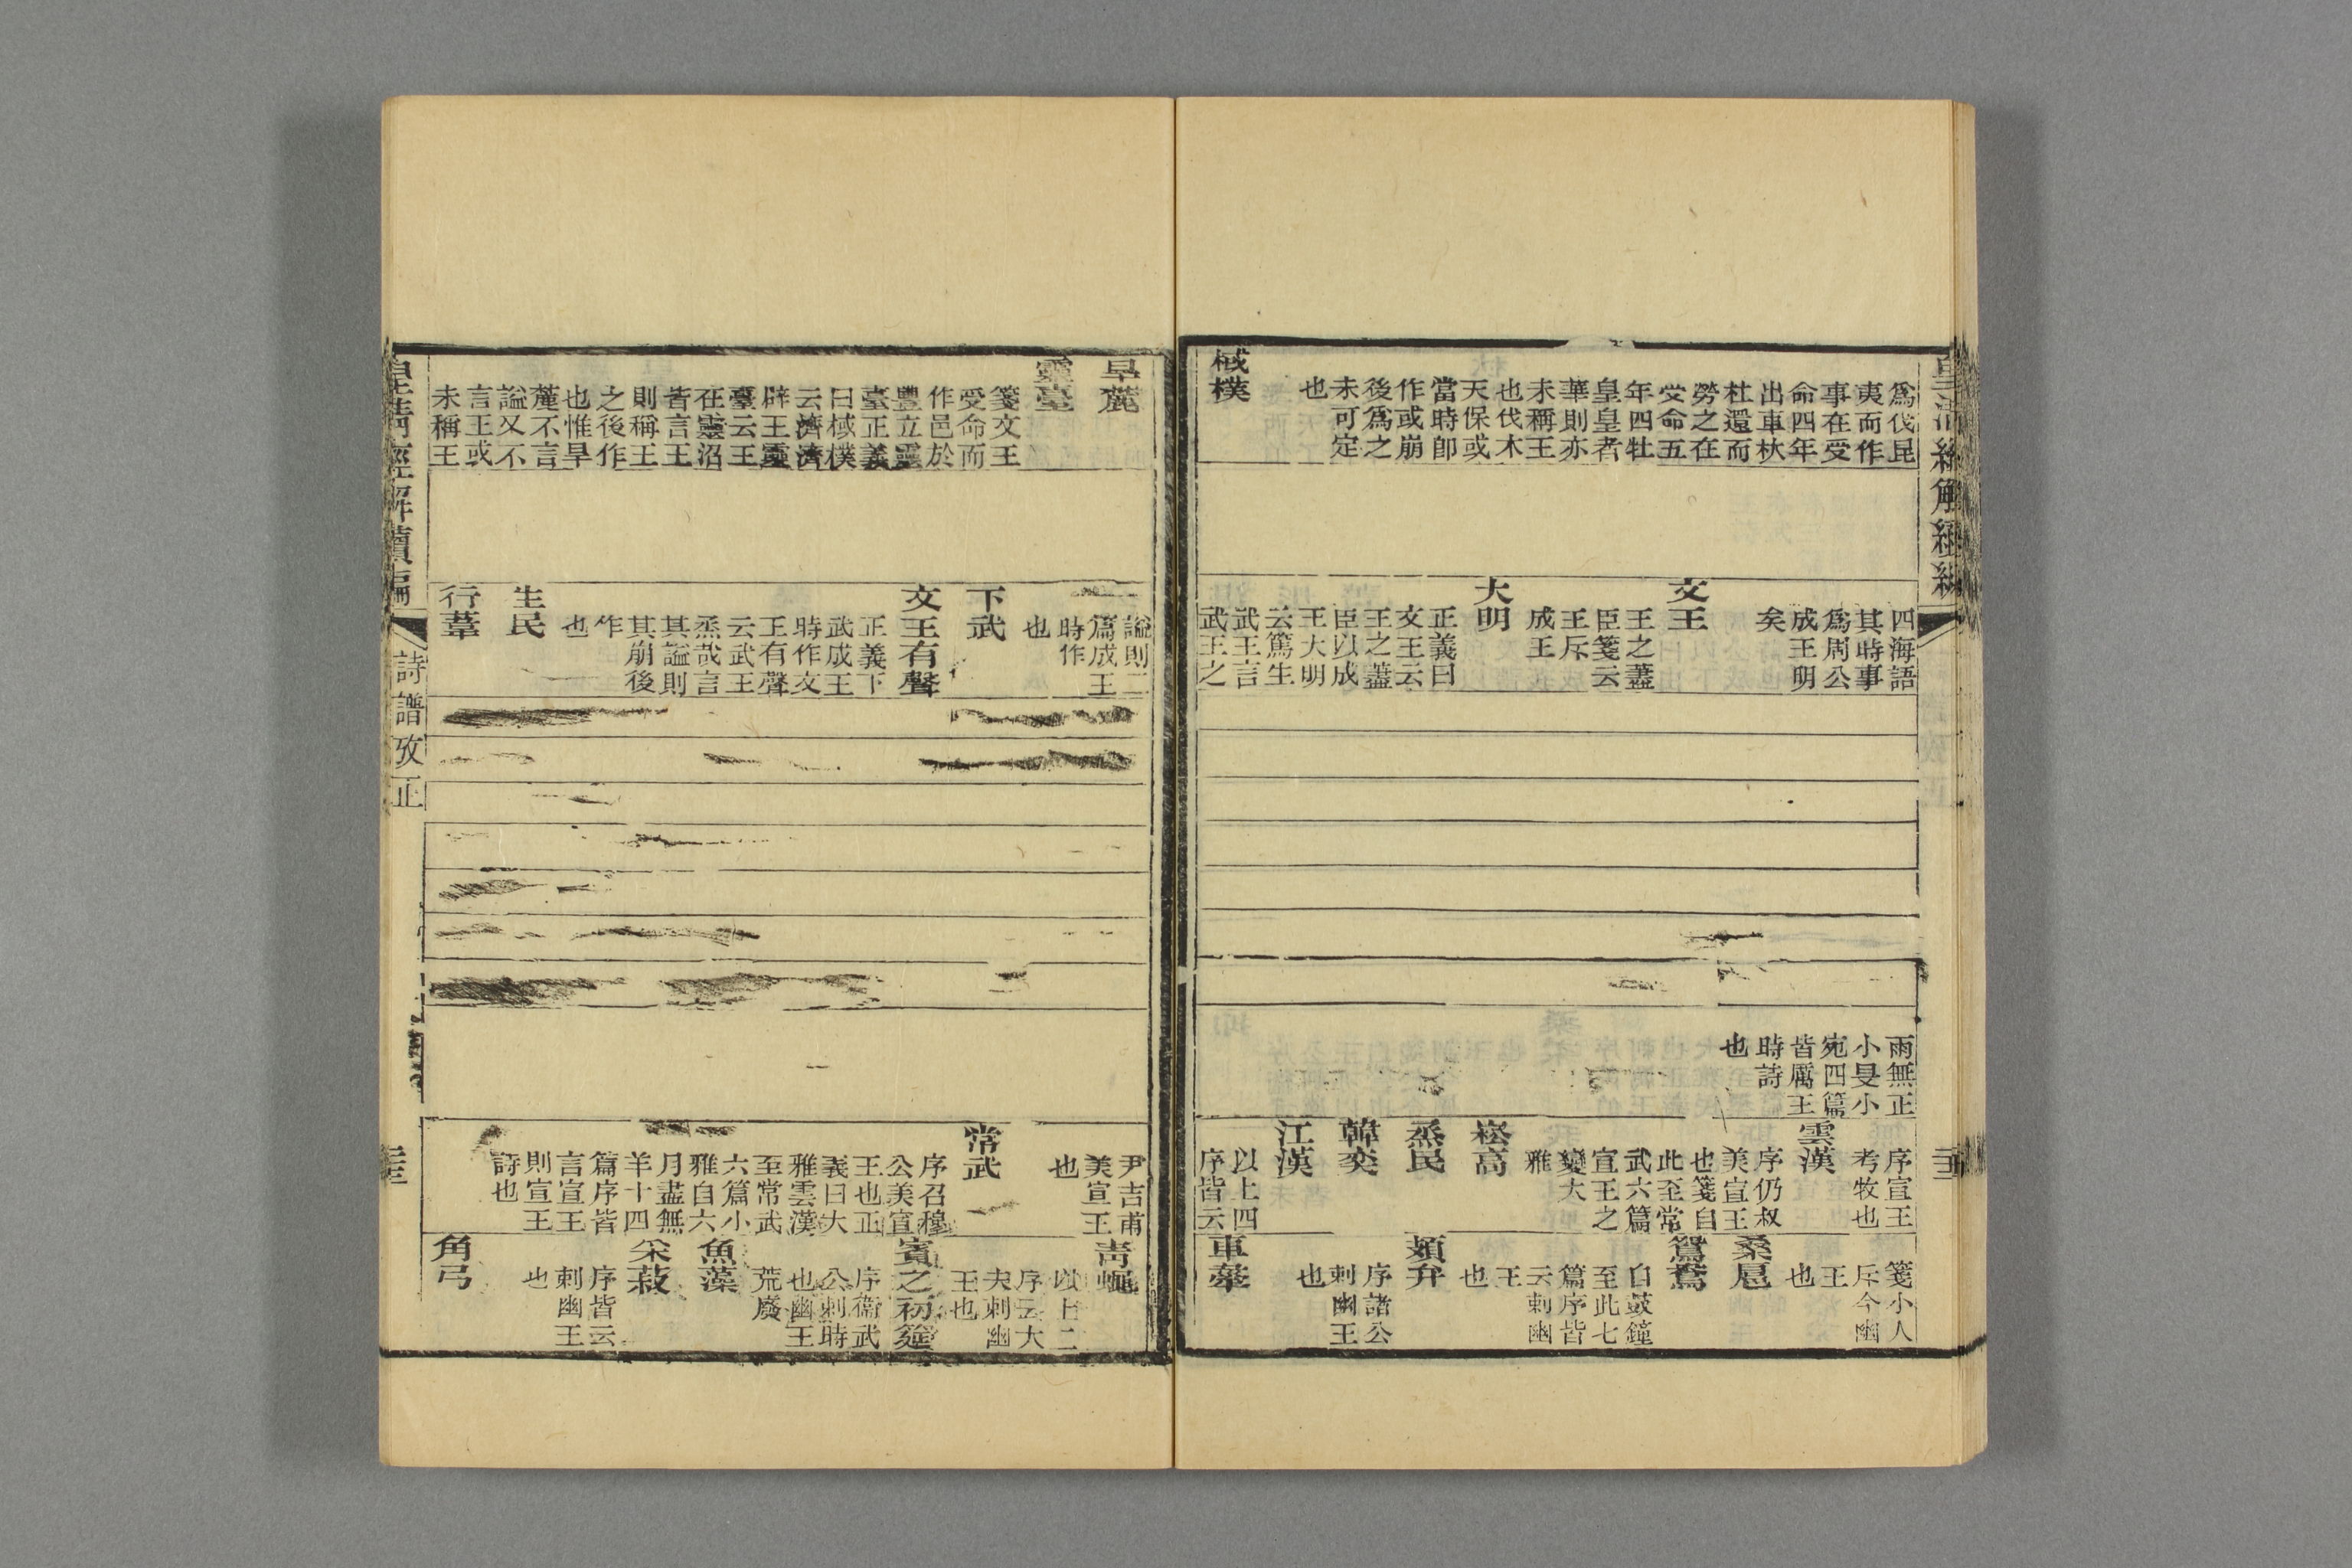 爲伐昆
夷而作
事在受
命四年
出車杕
杜還而
勞之在
受命五
年四牡
皇皇者
華則亦
未稱王
也伐木
天保或
當時卽
作或崩
後爲之
未可定
也
棫樸
四海語
其時事
爲周公
成王明
矣
文王
王之藎
臣箋云
王斥
成王
大明
正義曰
文王云
王之藎
臣以成
王大明
云篤生
武王言
武王之
雨無正
小旻小
宛四篇
皆厲王
時詩
也
序宣王
考牧也
雲漢
序仍叔
美宣王
也箋自
此至常
武六篇
宣王之
變大
雅
崧高
烝民
韓奕
江漢
以上四
序皆云
箋小人
斥今幽
王
也
桑扈
鴛鴦
自鼓鐘
至此七
篇序皆
云刺幽
王
也
頍弁
序諸公
刺幽王
也
車舝
旱麓
靈臺
箋文王
受命而
作邑於
豐立靈
臺正義
曰棫樸
云濟濟
辟王靈
臺云王
在靈沼
皆言王
則稱王
之後作
也惟旱
麓不言
謚又不
言王或
未稱王
謚則二
篇成王
時作
也
下武
文王有聲
正義下
武成王
時作文
王有聲
云武王
烝哉言
其謚則
其崩後
作
也
生民
行葦
尹吉甫
美宣王
也
常武
序召穆
公美宣
王也正
義曰大
雅雲漢
至常武
六篇小
雅自六
月盡無
羊十四
篇序皆
言宣王
則宣王
詩也
青蠅
以上二
序云大
夫刺幽
王也
賓之初筵
序衞武
公刺時
也幽王
荒廢
魚藻
采菽
序皆云
刺幽王
也
角弓
皇清經解續編
詩譜攷正